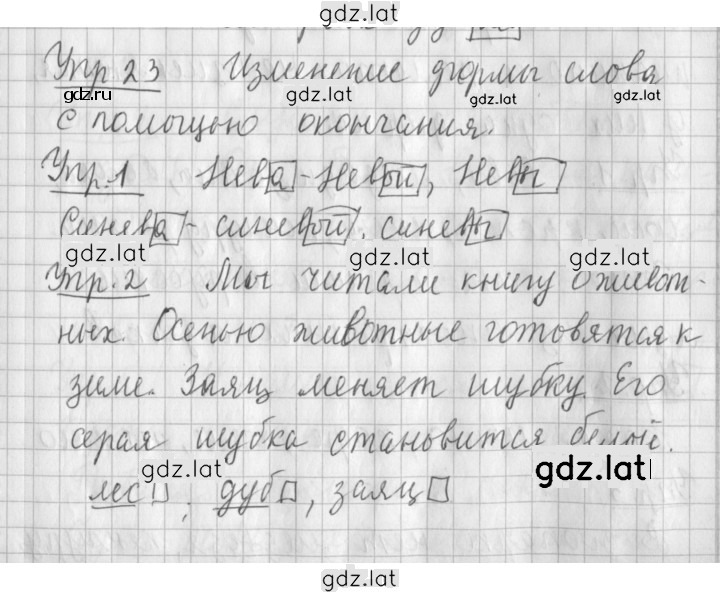 gdz.lat
Упр 23 Изменение формы слова
gdz.ru gdz.lat gdz.lat gdz.lat
с помощью окончания.
Упр.1 Нева - Невой, Невы
Синева - синевой, синевы
gdz.lat gdz.lat gdz.lat
Упр.2 Мы читали книгу о живот-
ных. Осенью животные готовятся к
зиме. Заяц меняет шубку. Его
серая шубка становится белой.
gdz.lat gdz.lat gdz.lat
лес, дуб, заяц
gdz.lat